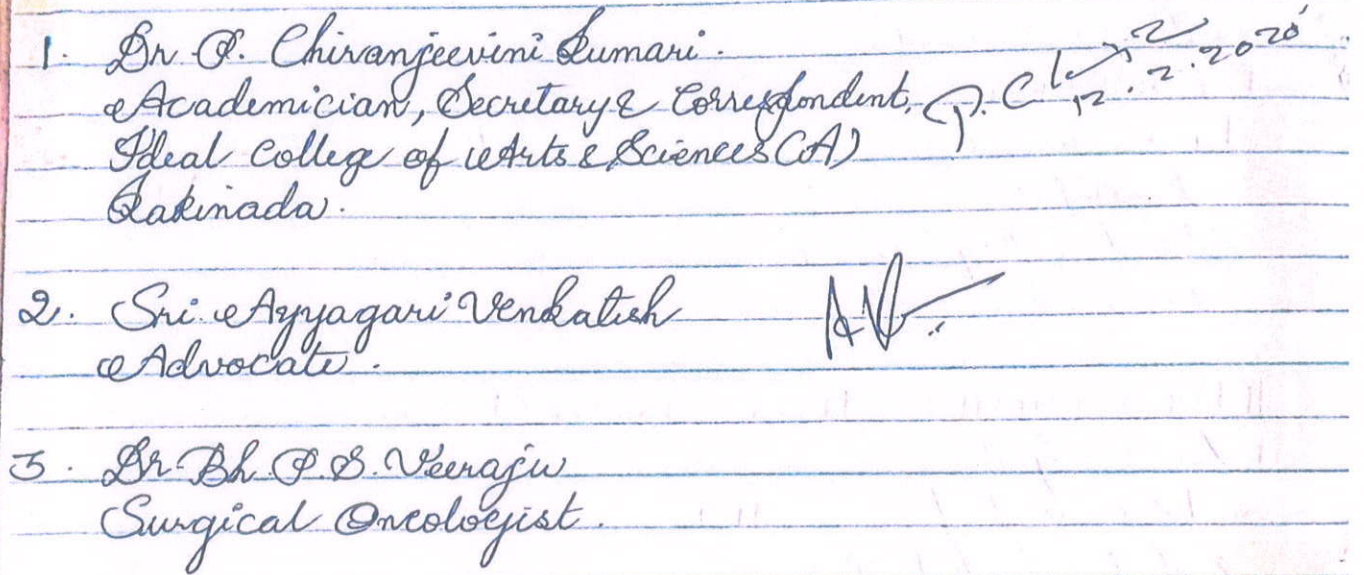 1. Dr. P. Chiranjeevini Kumari.
Academician, Secretary & Correspondent, P. Ch
12.2.2020
Ideal College of Arts & Sciences (A)
Kakinada.
2. Sri. Ayyagari Venkatesh
Advocate.
3. Dr. Bh. P. S. Veeraju
Surgical Oncologist.